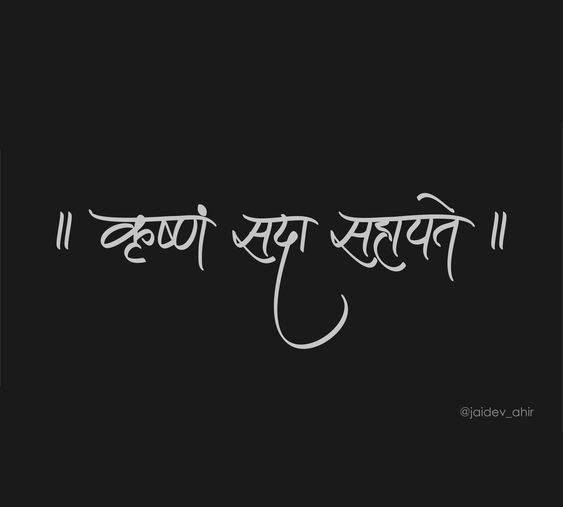 ॥ कृष्णं सदा सहायते ॥
@jaidev_ahir